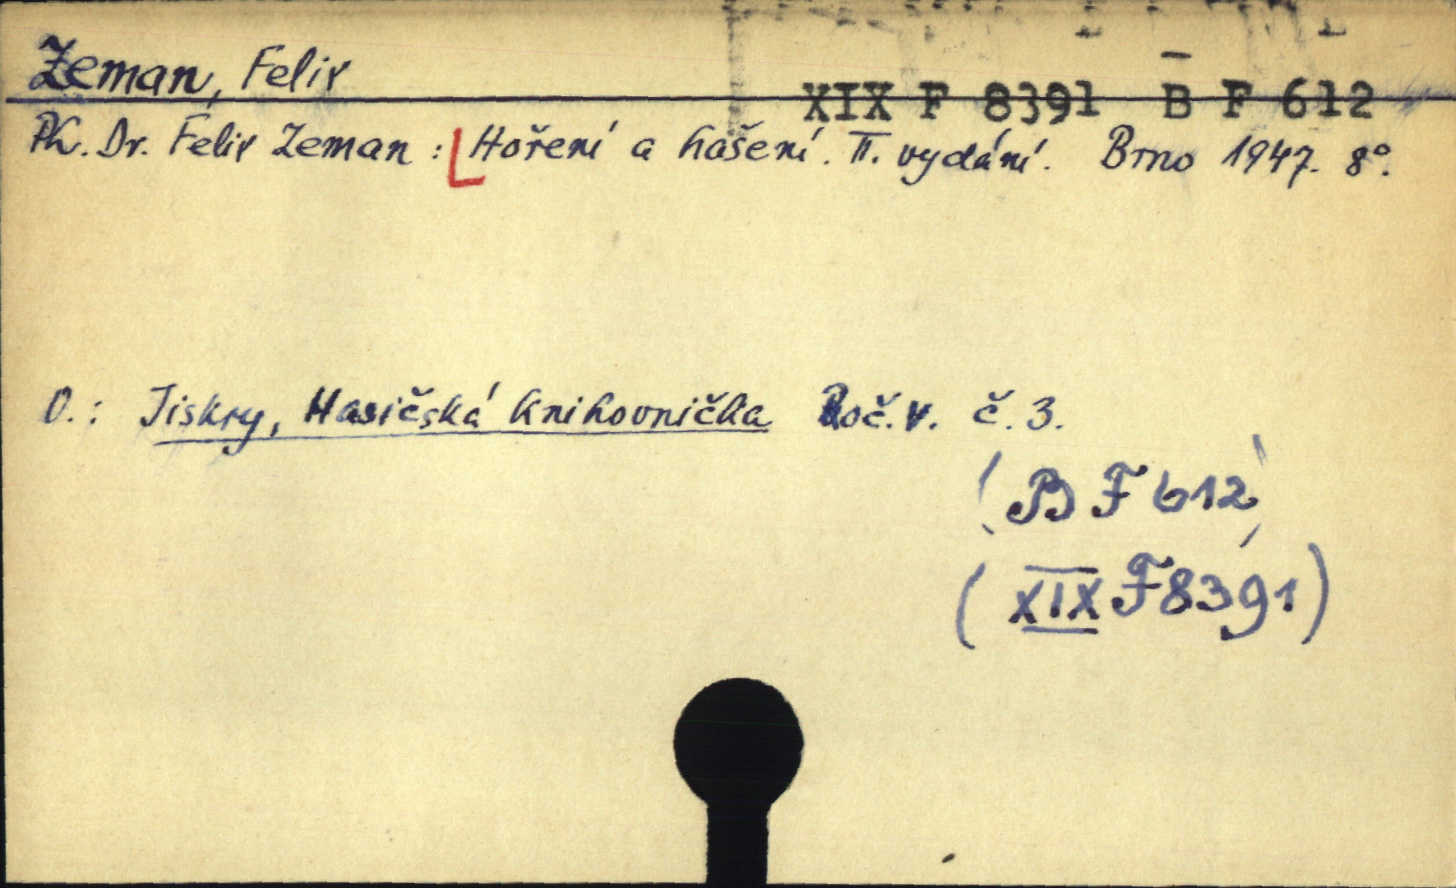 Zeman, Felix
XIX F 8391 B F 612
Ph. Dr. Felix Zeman : Hoření a hašení. II. vydání. Brno 1947. 8°.
O.: Jiskry, Hasičská knihovnička Roč. V. č. 3.
(B F 612)
(XIX F 8391)